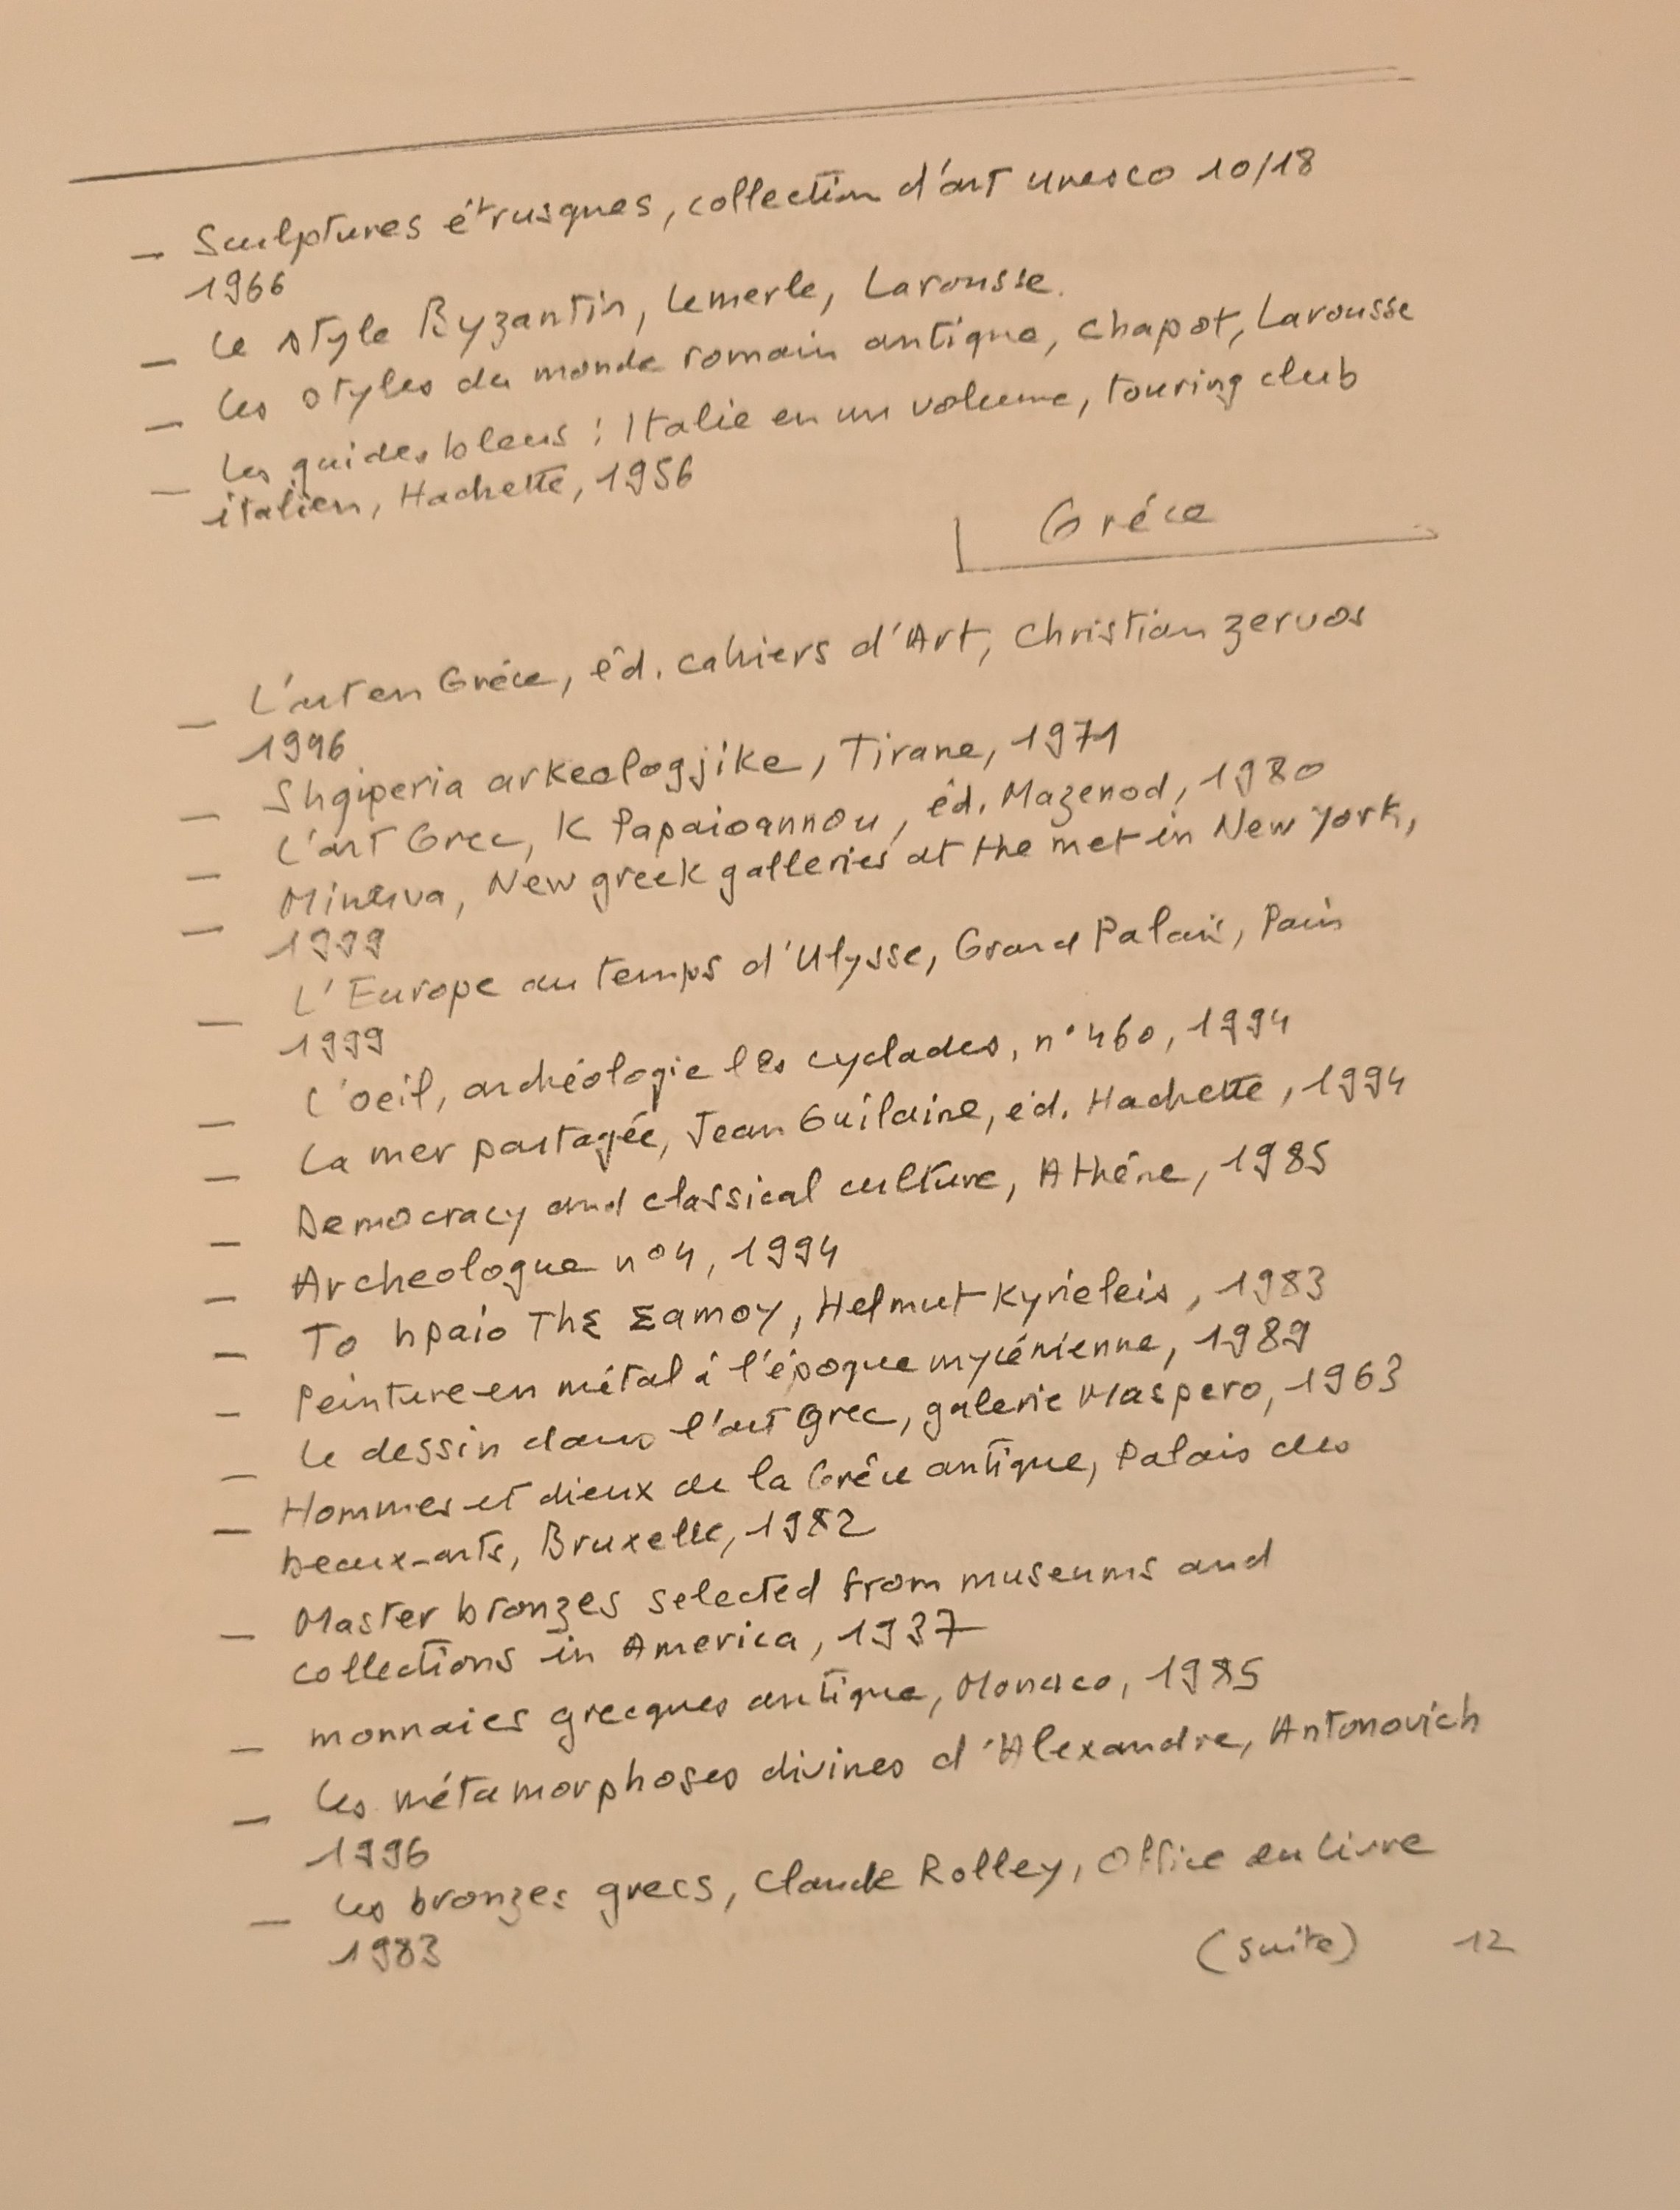 — Sculptures étrusques, collection d'art unesco 10/18
1966
— Le style Byzantin, Lemerle, Larousse.
— Les styles du monde romain antique, Chapot, Larousse
— Les guides bleus : Italie en un volume, touring club
italien, Hachette, 1956
Gréce
— L'art en Gréce, éd. cahiers d'Art, Christian Zervos
1996
— Shqiperia arkeologjike, Tirane, 1971
— L'art Grec, K Papaioannou, éd. Mazenod, 1980
— Minerva, New greek galleries at the met in New York,
1999
— L'Europe au temps d'Ulysse, Grand Palais, Paris
1999
— L'oeil, archéologie les cyclades, n° 460, 1994
— La mer partagée, Jean Guilaine, éd. Hachette, 1994
— Democracy and classical culture, Athéne, 1985
— Archeologue n°4, 1994
— To hpaio The Σamoy, Helmut Kyrieleis, 1983
— Peinture en métal à l'époque mycénienne, 1989
— Le dessin dans l'art Grec, galerie Maspero, 1963
— Hommes et dieux de la Gréce antique, Palais des
beaux-arts, Bruxelle, 1982
— Master bronzes selected from museums and
collections in America, 1937
— monnaies grecques antique, Monaco, 1985
— Les métamorphoses divines d'Alexandre, Antonovich
1996
— Les bronzes grecs, Claude Rolley, Office du Livre
1983
(suite) 12